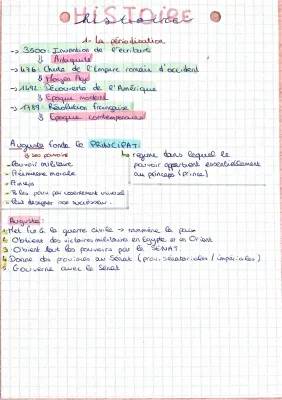 HISTOIRE
histoire
1. La périodisation
-> 3500: Invention de l'écriture
Antiquité
-> 476: Chute de l'Empire romain d'occident
Moyen Age
-> 1492: Découverte de l'Amérique
Epoque moderne
-> 1789: Révolution française
Epoque contemporaine
Auguste fonde le PRINCIPAT:
ses pouvoirs
regime dans lequel le
pouvoir appartient essentiellement
au princeps (prince)
- Pouvoir militaire
- Prééminence morale
- Princeps
- les pleins par consentement universel
- Peut designer son successeur
Auguste:
1. Met fin à la guerre civile -> ramène la paix
2. Obtient des victoires militaires en Egypte et en Orient
3. Obtient tout les pouvoirs par le SENAT.
4. Donne des provinces au Senat (prov. sénatoriales / impériales)
5. Gouverne avec le Senat